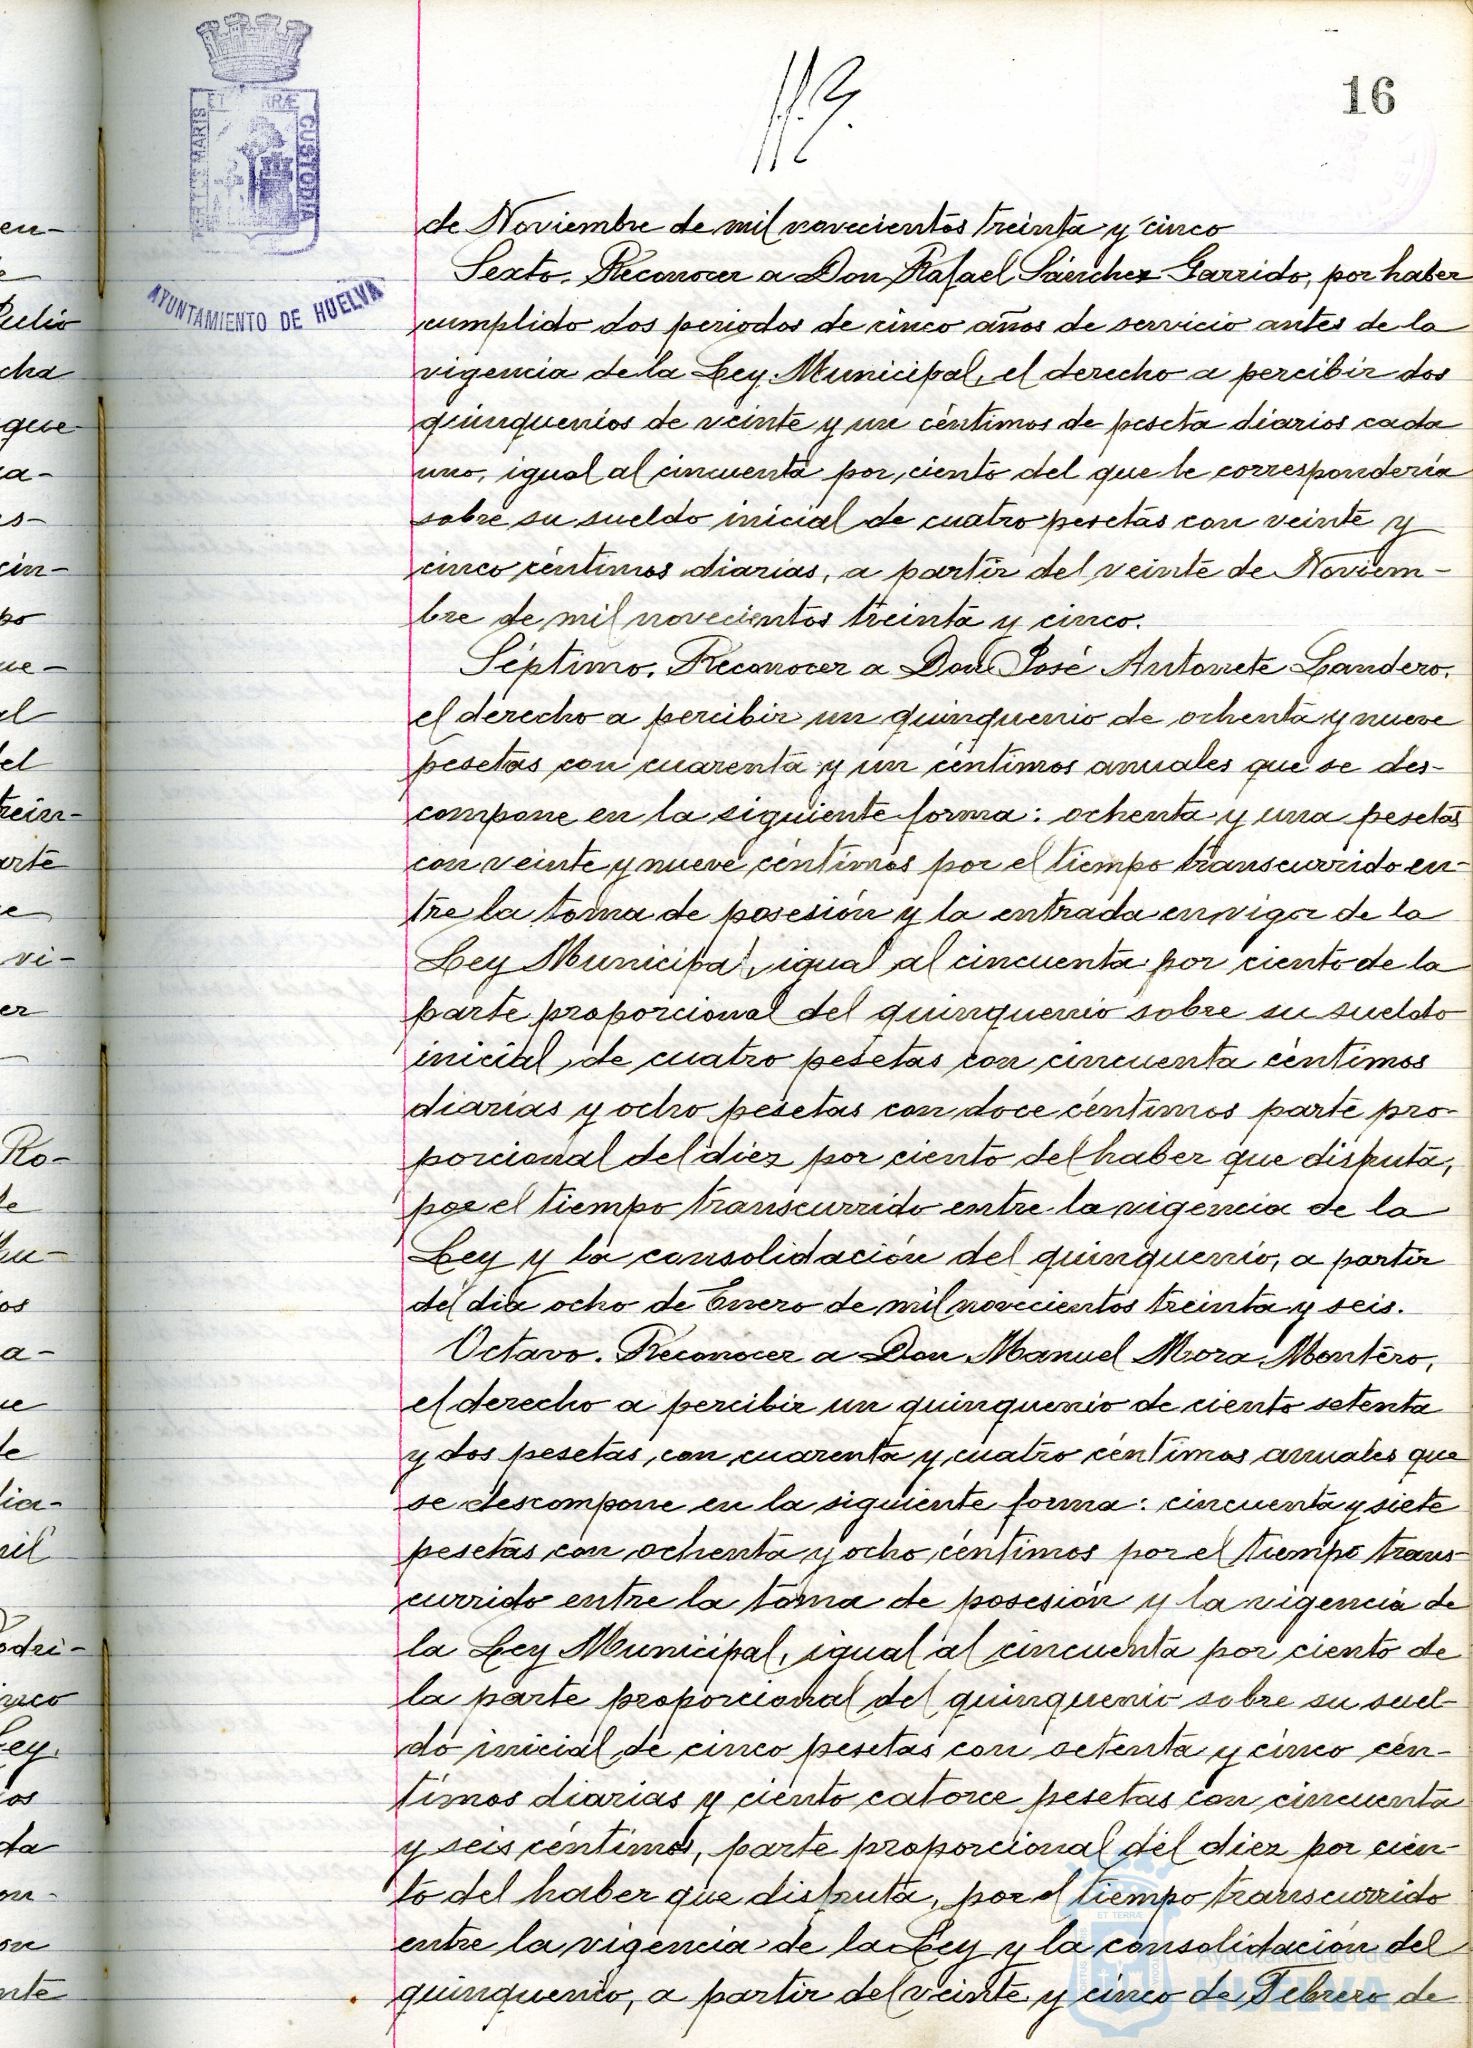 16
PORTUS MARIS ET TERRÆ CUSTODIA
AYUNTAMIENTO DE HUELVA
de Noviembre de mil novecientos treinta y cinco
Sexto. Reconocer a Don Rafael Sánchez Garrido, por haber
cumplido dos periodos de cinco años de servicio antes de la
vigencia de la Ley Municipal, el derecho a percibir dos
quinquenios de veinte y un céntimos de peseta diarios cada
uno, igual al cincuenta por ciento del que le correspondería
sobre su sueldo inicial de cuatro pesetas con veinte y
cinco céntimos diarias, a partir del veinte de Noviem-
bre de mil novecientos treinta y cinco.
Séptimo. Reconocer a Don José Antonete Landero,
el derecho a percibir un quinquenio de ochenta y nueve
pesetas con cuarenta y un céntimos anuales que se des-
compone en la siguiente forma: ochenta y una pesetas
con veinte y nueve céntimos por el tiempo transcurrido en-
tre la toma de posesión y la entrada en vigor de la
Ley Municipal, igual al cincuenta por ciento de la
parte proporcional del quinquenio sobre su sueldo
inicial de cuatro pesetas con cincuenta céntimos
diarias y ocho pesetas con doce céntimos parte pro-
porcional del diez por ciento del haber que disfruta,
por el tiempo transcurrido entre la vigencia de la
Ley y la consolidación del quinquenio, a partir
del dia ocho de Enero de mil novecientos treinta y seis.
Octavo. Reconocer a Don Manuel Mora Montero,
el derecho a percibir un quinquenio de ciento setenta
y dos pesetas con cuarenta y cuatro céntimos anuales que
se descompone en la siguiente forma: cincuenta y siete
pesetas con ochenta y ocho céntimos por el tiempo trans-
currido entre la toma de posesión y la vigencia de
la Ley Municipal, igual al cincuenta por ciento de
la parte proporcional del quinquenio sobre su suel-
do inicial de cinco pesetas con setenta y cinco cén-
timos diarias y ciento catorce pesetas con cincuenta
y seis céntimos, parte proporcional del diez por cien-
to del haber que disfruta, por el tiempo transcurrido
entre la vigencia de la Ley y la consolidación del
quinquenio, a partir del veinte y cinco de Febrero de
Ayuntamiento de
HUELVA